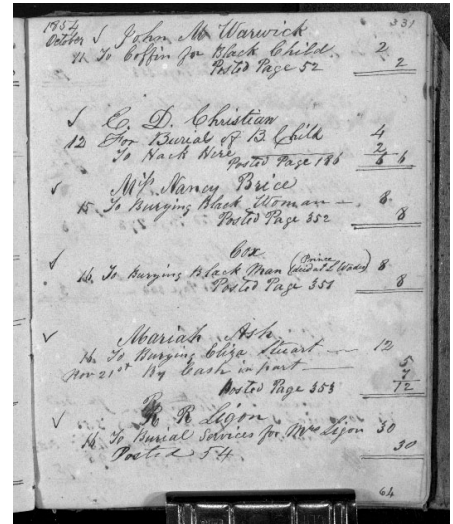 331
1854
October John M Warwick
To Coffin for Black Child 2
Posted Page 52 2
E. D. Christian
12 For Burial of B. Child 4
To Hack Hire 2
Posted Page 186 6 6
Miss Nancy Brice
15 To Burying Black Woman — 8
Posted Page 352 8
Cox
16 To Burying Black Man (Prince died at L Wades) 8
Posted Page 351 8
Mariah Ash
16 To Burying Eliza Stuart — 12
Nov 21st By Cash in part — 5
7
Posted Page 353 12
R R Ligon
16 To Burial Services for Mrs Ligon 30
Posted 54 30
64